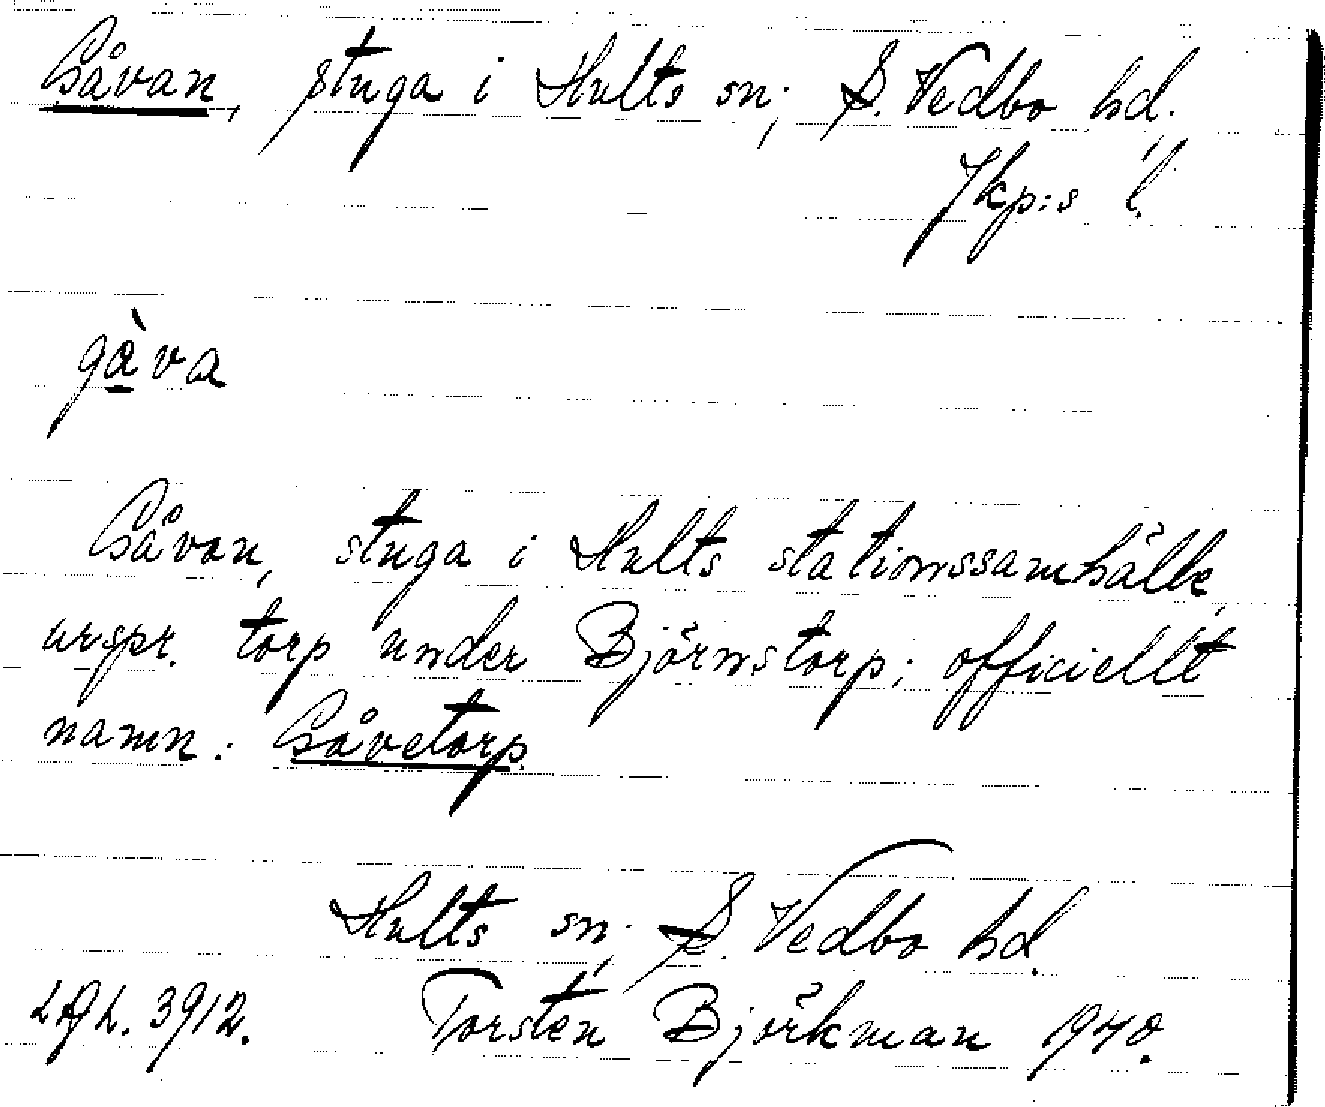 Gåvan, stuga i Hults sn; S. Vedbo hd.
Jkp:s l.
gàva
Gåvan, stuga i Hults stationssamhälle,
urspr. torp under Björnstorp; officiellt
namn: Gåvetorp
Hults sn; S. Vedbo hd.
3912. Torsten Björkman 1940.